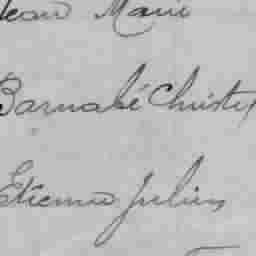 Jean Marie
Barnabé Christe
Etienne Julien